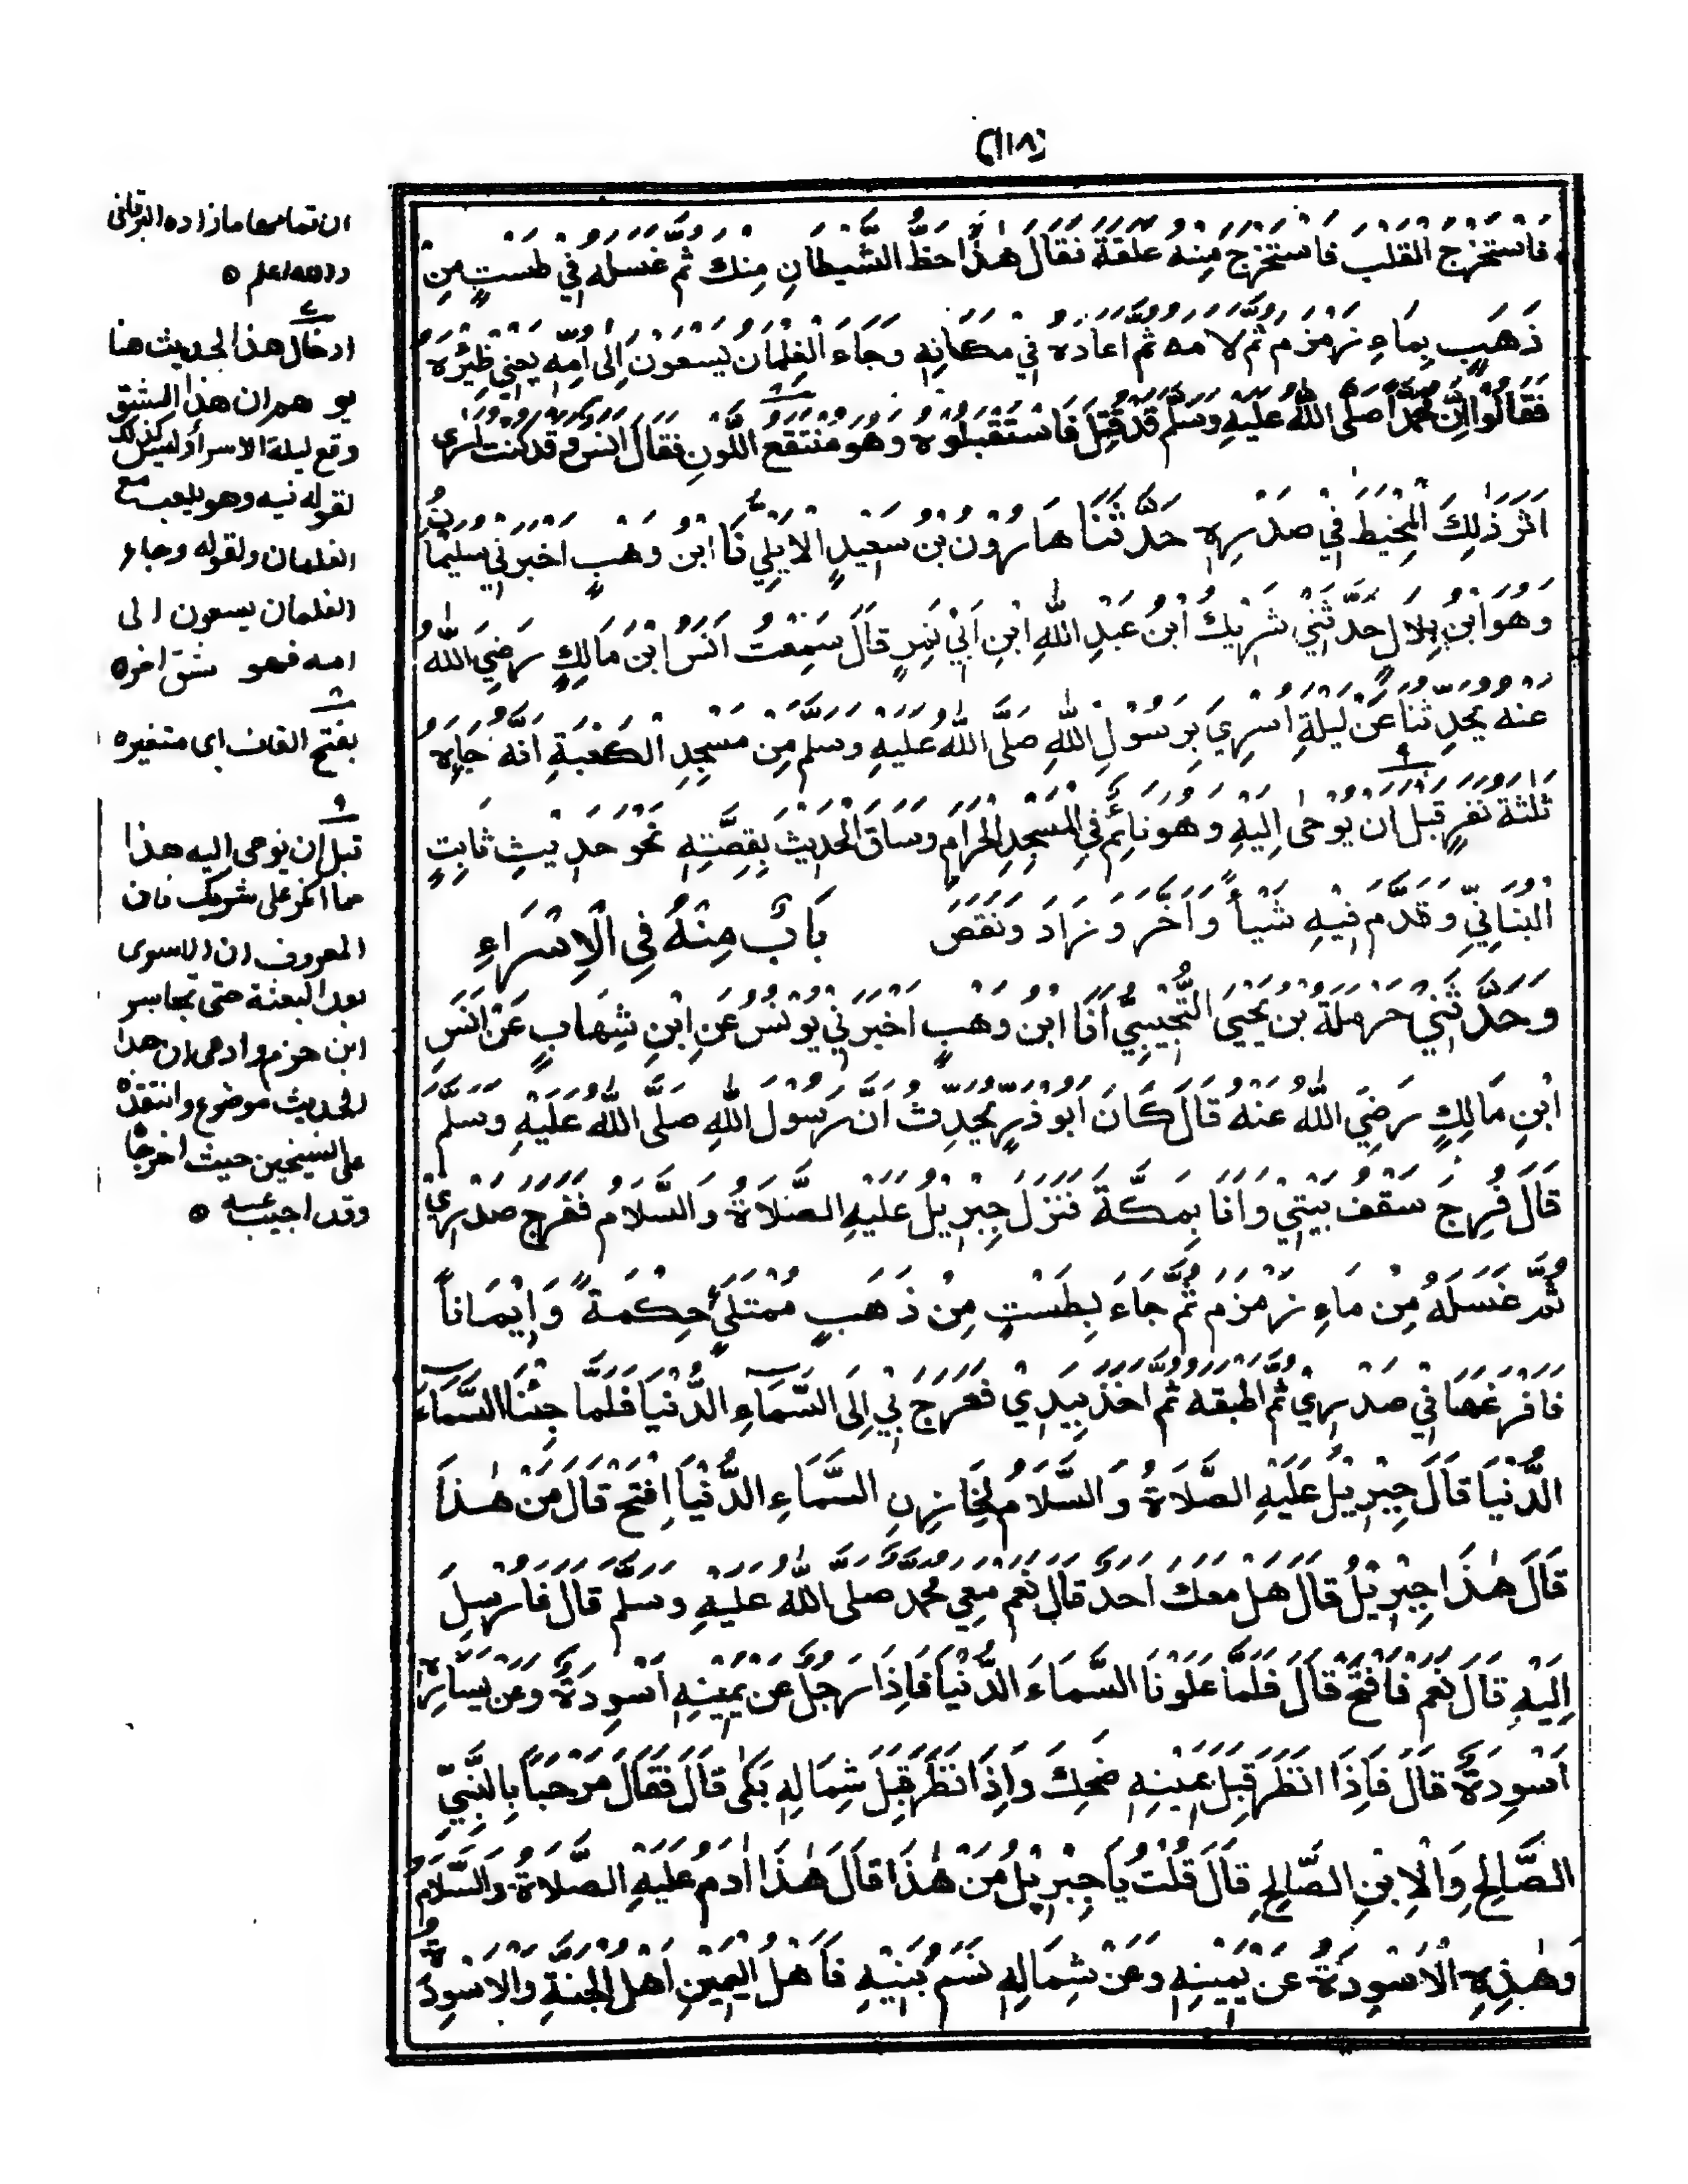 (١١٨)
فَاسْتَخْرَجَ الْقَلْبَ فَاسْتَخْرَجَ مِنْهُ عَلَقَةً فَقَالَ هٰذَا حَظُّ الشَّيْطَانِ مِنْكَ ثُمَّ غَسَلَهُ فِيْ طَسْتٍ مِنْ
ذَهَبٍ بِمَاءِ زَمْزَمَ ثُمَّ لَامَهُ ثُمَّ اَعَادَهُ فِيْ مَكَانِهِ وَجَاءَ الْغِلْمَانُ يَسْعَوْنَ اِلٰى اُمِّهِ يَعْنِيْ ظِئْرَهُ
فَقَالُوْا اِنَّ مُحَمَّداً صَلَّى اللّٰهُ عَلَيْهِ وَسَلَّمَ قَدْ قُتِلَ فَاسْتَقْبَلُوْهُ وَهُوَ مُنْتَقَعُ اللَّوْنِ فَقَالَ اَنَسٌ وَقَدْ كُنْتُ اَرٰى
اَثَرَ ذٰلِكَ الْمِخْيَطِ فِيْ صَدْرِهِ حَدَّثَنَا هَارُوْنُ بْنُ سَعِيْدٍ الْاَيْلِيُّ نَا ابْنُ وَهْبٍ اَخْبَرَنِيْ سُلَيْمَانُ
وَهُوَ ابْنُ بِلَالٍ حَدَّثَنِيْ شَرِيْكُ ابْنُ عَبْدِ اللّٰهِ ابْنِ اَبِيْ نَمِرٍ قَالَ سَمِعْتُ اَنَسَ ابْنَ مَالِكٍ رَضِيَ اللّٰهُ
عَنْهُ يُحَدِّثُنَا عَنْ لَيْلَةِ اُسْرِيَ بِرَسُوْلِ اللّٰهِ صَلَّى اللّٰهُ عَلَيْهِ وَسَلَّمَ مِنْ مَسْجِدِ الْكَعْبَةِ اَنَّهُ جَاءَهُ
ثَلٰثَةُ نَفَرٍ قَبْلَ اَنْ يُوْحٰى اِلَيْهِ وَهُوَ نَائِمٌ فِي الْمَسْجِدِ الْحَرَامِ وَسَاقَ الْحَدِيْثَ بِقِصَّتِهِ نَحْوَ حَدِيْثِ ثَابِتٍ
الْبُنَانِيِّ وَقَدَّمَ فِيْهِ شَيْأً وَاَخَّرَ وَزَادَ وَنَقَصَ بَابٌ مِنْهُ فِي الْاِسْرَاءِ
وَحَدَّثَنِيْ حَرْمَلَةُ بْنُ يَحْيَى التُّجِيْبِيُّ اَنَا ابْنُ وَهْبٍ اَخْبَرَنِيْ يُوْنُسُ عَنِ ابْنِ شِهَابٍ عَنْ اَنَسِ
ابْنِ مَالِكٍ رَضِيَ اللّٰهُ عَنْهُ قَالَ كَانَ اَبُوْ ذَرٍّ يُحَدِّثُ اَنَّ رَسُوْلَ اللّٰهِ صَلَّى اللّٰهُ عَلَيْهِ وَسَلَّمَ
قَالَ فُرِجَ سَقْفُ بَيْتِيْ وَاَنَا بِمَكَّةَ فَنَزَلَ جِبْرِيْلُ عَلَيْهِ الصَّلَاةُ وَالسَّلَامُ فَفَرَجَ صَدْرِيْ
ثُمَّ غَسَلَهُ مِنْ مَاءِ زَمْزَمَ ثُمَّ جَاءَ بِطَسْتٍ مِنْ ذَهَبٍ مُمْتَلِئٍ حِكْمَةً وَاِيْمَاناً
فَافْرَغَهَا فِيْ صَدْرِيْ ثُمَّ اَطْبَقَهُ ثُمَّ اَخَذَ بِيَدِيْ فَعَرَجَ بِيْ اِلَى السَّمَاءِ الدُّنْيَا فَلَمَّا جِئْنَا السَّمَاءَ
الدُّنْيَا قَالَ جِبْرِيْلُ عَلَيْهِ الصَّلَاةُ وَالسَّلَامُ لِخَازِنِ السَّمَاءِ الدُّنْيَا اِفْتَحْ قَالَ مَنْ هٰذَا
قَالَ هٰذَا جِبْرِيْلُ قَالَ هَلْ مَعَكَ اَحَدٌ قَالَ نَعَمْ مَعِيْ مُحَمَّدٌ صَلَّى اللّٰهُ عَلَيْهِ وَسَلَّمَ قَالَ فَاُرْسِلَ
اِلَيْهِ قَالَ نَعَمْ فَافْتَحْ قَالَ فَلَمَّا عَلَوْنَا السَّمَاءَ الدُّنْيَا فَاِذَا رَجُلٌ عَنْ يَمِيْنِهِ اَسْوِدَةٌ وَعَنْ يَسَارِهِ
اَسْوِدَةٌ قَالَ فَاِذَا انَظَرَ قِبَلَ يَمِيْنِهِ ضَحِكَ وَاِذَا نَظَرَ قِبَلَ شِمَالِهِ بَكٰى قَالَ فَقَالَ مَرْحَباً بِالنَّبِيِّ
الصَّالِحِ وَالْاِبْنِ الصَّالِحِ قَالَ قُلْتُ يَا جِبْرِيْلُ مَنْ هٰذَا قَالَ هٰذَا اٰدَمُ عَلَيْهِ الصَّلَاةُ وَالسَّلَامُ
وَهٰذِهِ الْاَسْوِدَةُ عَنْ يَمِيْنِهِ وَعَنْ شِمَالِهِ نَسَمُ بَنِيْهِ فَاَهْلُ الْيَمِيْنِ اَهْلُ الْجَنَّةِ وَالْاَسْوِدَةُ
ان تمامها ما زاده البرقانى
والله اعلم ٥
ادخال هذا الحديث هنا
يوهم ان هذا الشق
وقع ليلة الاسرأ وليس كذلك
لقوله فيه وهو يلعب مع
الغلمان ولقوله وجاء
الغلمان يسعون الى
امه فهو شق اخر ٥
٨
بفتح القاف اى متغير ٥
٩
قبل ان يوحى اليه هذا
مما انكر على شريك فان
المعروف ان الاسرى
بعد البعثة حتى تجاسر
ابن حزم وادعى ان هذا
الحديث موضوع وانتقده
على الشيخين حيث اخرجا
وقد اجيب عنه ٥